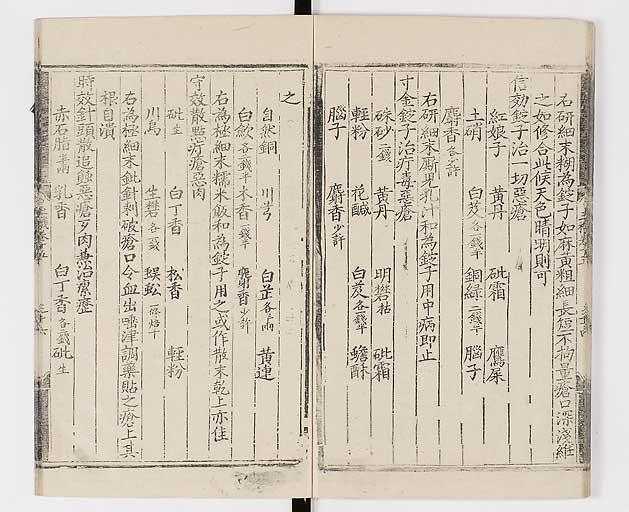 右研細末糊為錠子如麻黃粗細長短不拘量瘡口深淺絍
之如修合此候天色晴明則可
信効錠子治一切惡瘡
紅娘子 黃丹 砒霜 鷹屎
土硝 白芨各錢半 銅緑二錢半 腦子
麝香各少許
寸金錠子治疔毒惡瘡
右研細末廝児乳汁和為錠子用中病即止
硃砂二錢 黃丹 明礬枯 砒霜
輕粉 花鹹 白芨各錢半 蟾酥
腦子 麝香少許
之
自然銅 川芎 白芷各兩 黃連
白歛各錢半 木香一錢半 麝香少許
右為極細末糯米飯和為錠子用之或作散末乾上亦佳
守效散點疔瘡惡肉
砒生 白丁香 松香 輕粉
川烏 生礬各錢 蜈蚣一條焙干
右為極細末鈚針刺破瘡口令血出嚥津調藥貼之瘡上其
根自潰
時效針頭散追蝕惡瘡歹肉兼治瘰癧
赤石脂半兩 乳香 白丁香各錢 砒生